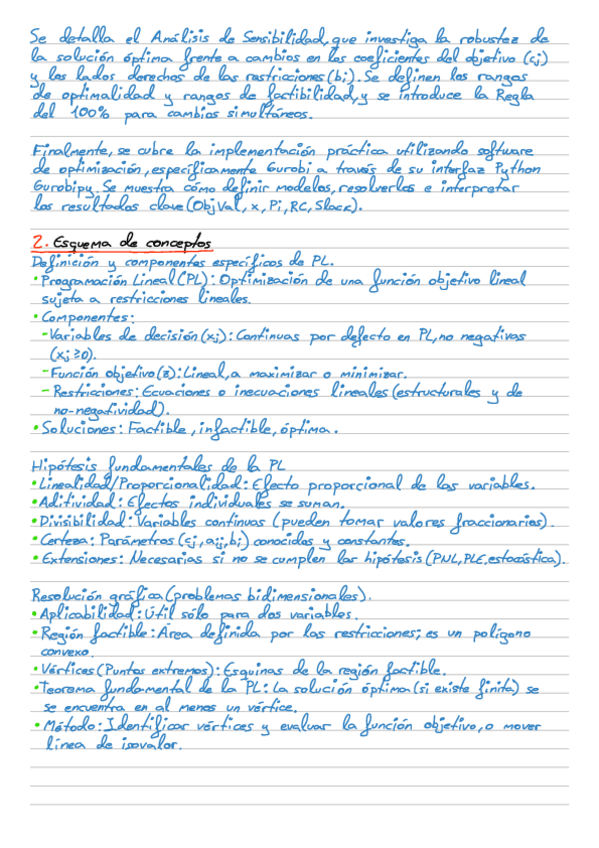 Se detalla el Análisis de Sensibilidad, que investiga la robustez de
la solución óptima frente a cambios en los coeficientes del objetivo (cj)
y los lados derechos de las restricciones (bi). Se definen los rangos
de optimalidad y rangos de factibilidad, y se introduce la Regla
del 100% para cambios simultáneos.
Finalmente, se cubre la implementación práctica utilizando software
de optimización, específicamente Gurobi a través de su interfaz Python
Gurobipy. Se muestra cómo definir modelos, resolverlos e interpretar
los resultados clave (ObjVal, x, Pi, RC, Slack).
2. Esquema de conceptos
Definición y componentes específicos de PL.
• Programación Lineal (PL): Optimización de una función objetivo lineal
sujeta a restricciones lineales.
• Componentes:
- Variables de decisión (xj): Continuas por defecto en PL, no negativas
(xj ≥ 0).
- Función objetivo (z): Lineal, a maximizar o minimizar.
- Restricciones: Ecuaciones o inecuaciones lineales (estructurales y de
no-negatividad).
• Soluciones: Factible, infactible, óptima.
Hipótesis fundamentales de la PL
• Linealidad/Proporcionalidad: Efecto proporcional de las variables.
• Aditividad: Efectos individuales se suman.
• Divisibilidad: Variables continuas (pueden tomar valores fraccionarios).
• Certeza: Parámetros (cj, aij, bi) conocidos y constantes.
• Extensiones: Necesarias si no se cumplen las hipótesis (PNL, PLE, estocástica).
Resolución gráfica (problemas bidimensionales).
• Aplicabilidad: Útil sólo para dos variables.
• Región factible: Área definida por las restricciones; es un polígono
convexo.
• Vértices (Puntos extremos): Esquinas de la región factible.
• Teorema fundamental de la PL: La solución óptima (si existe finita) se
se encuentra en al menos un vértice.
• Método: Identificar vértices y evaluar la función objetivo, o mover
línea de isovalor.